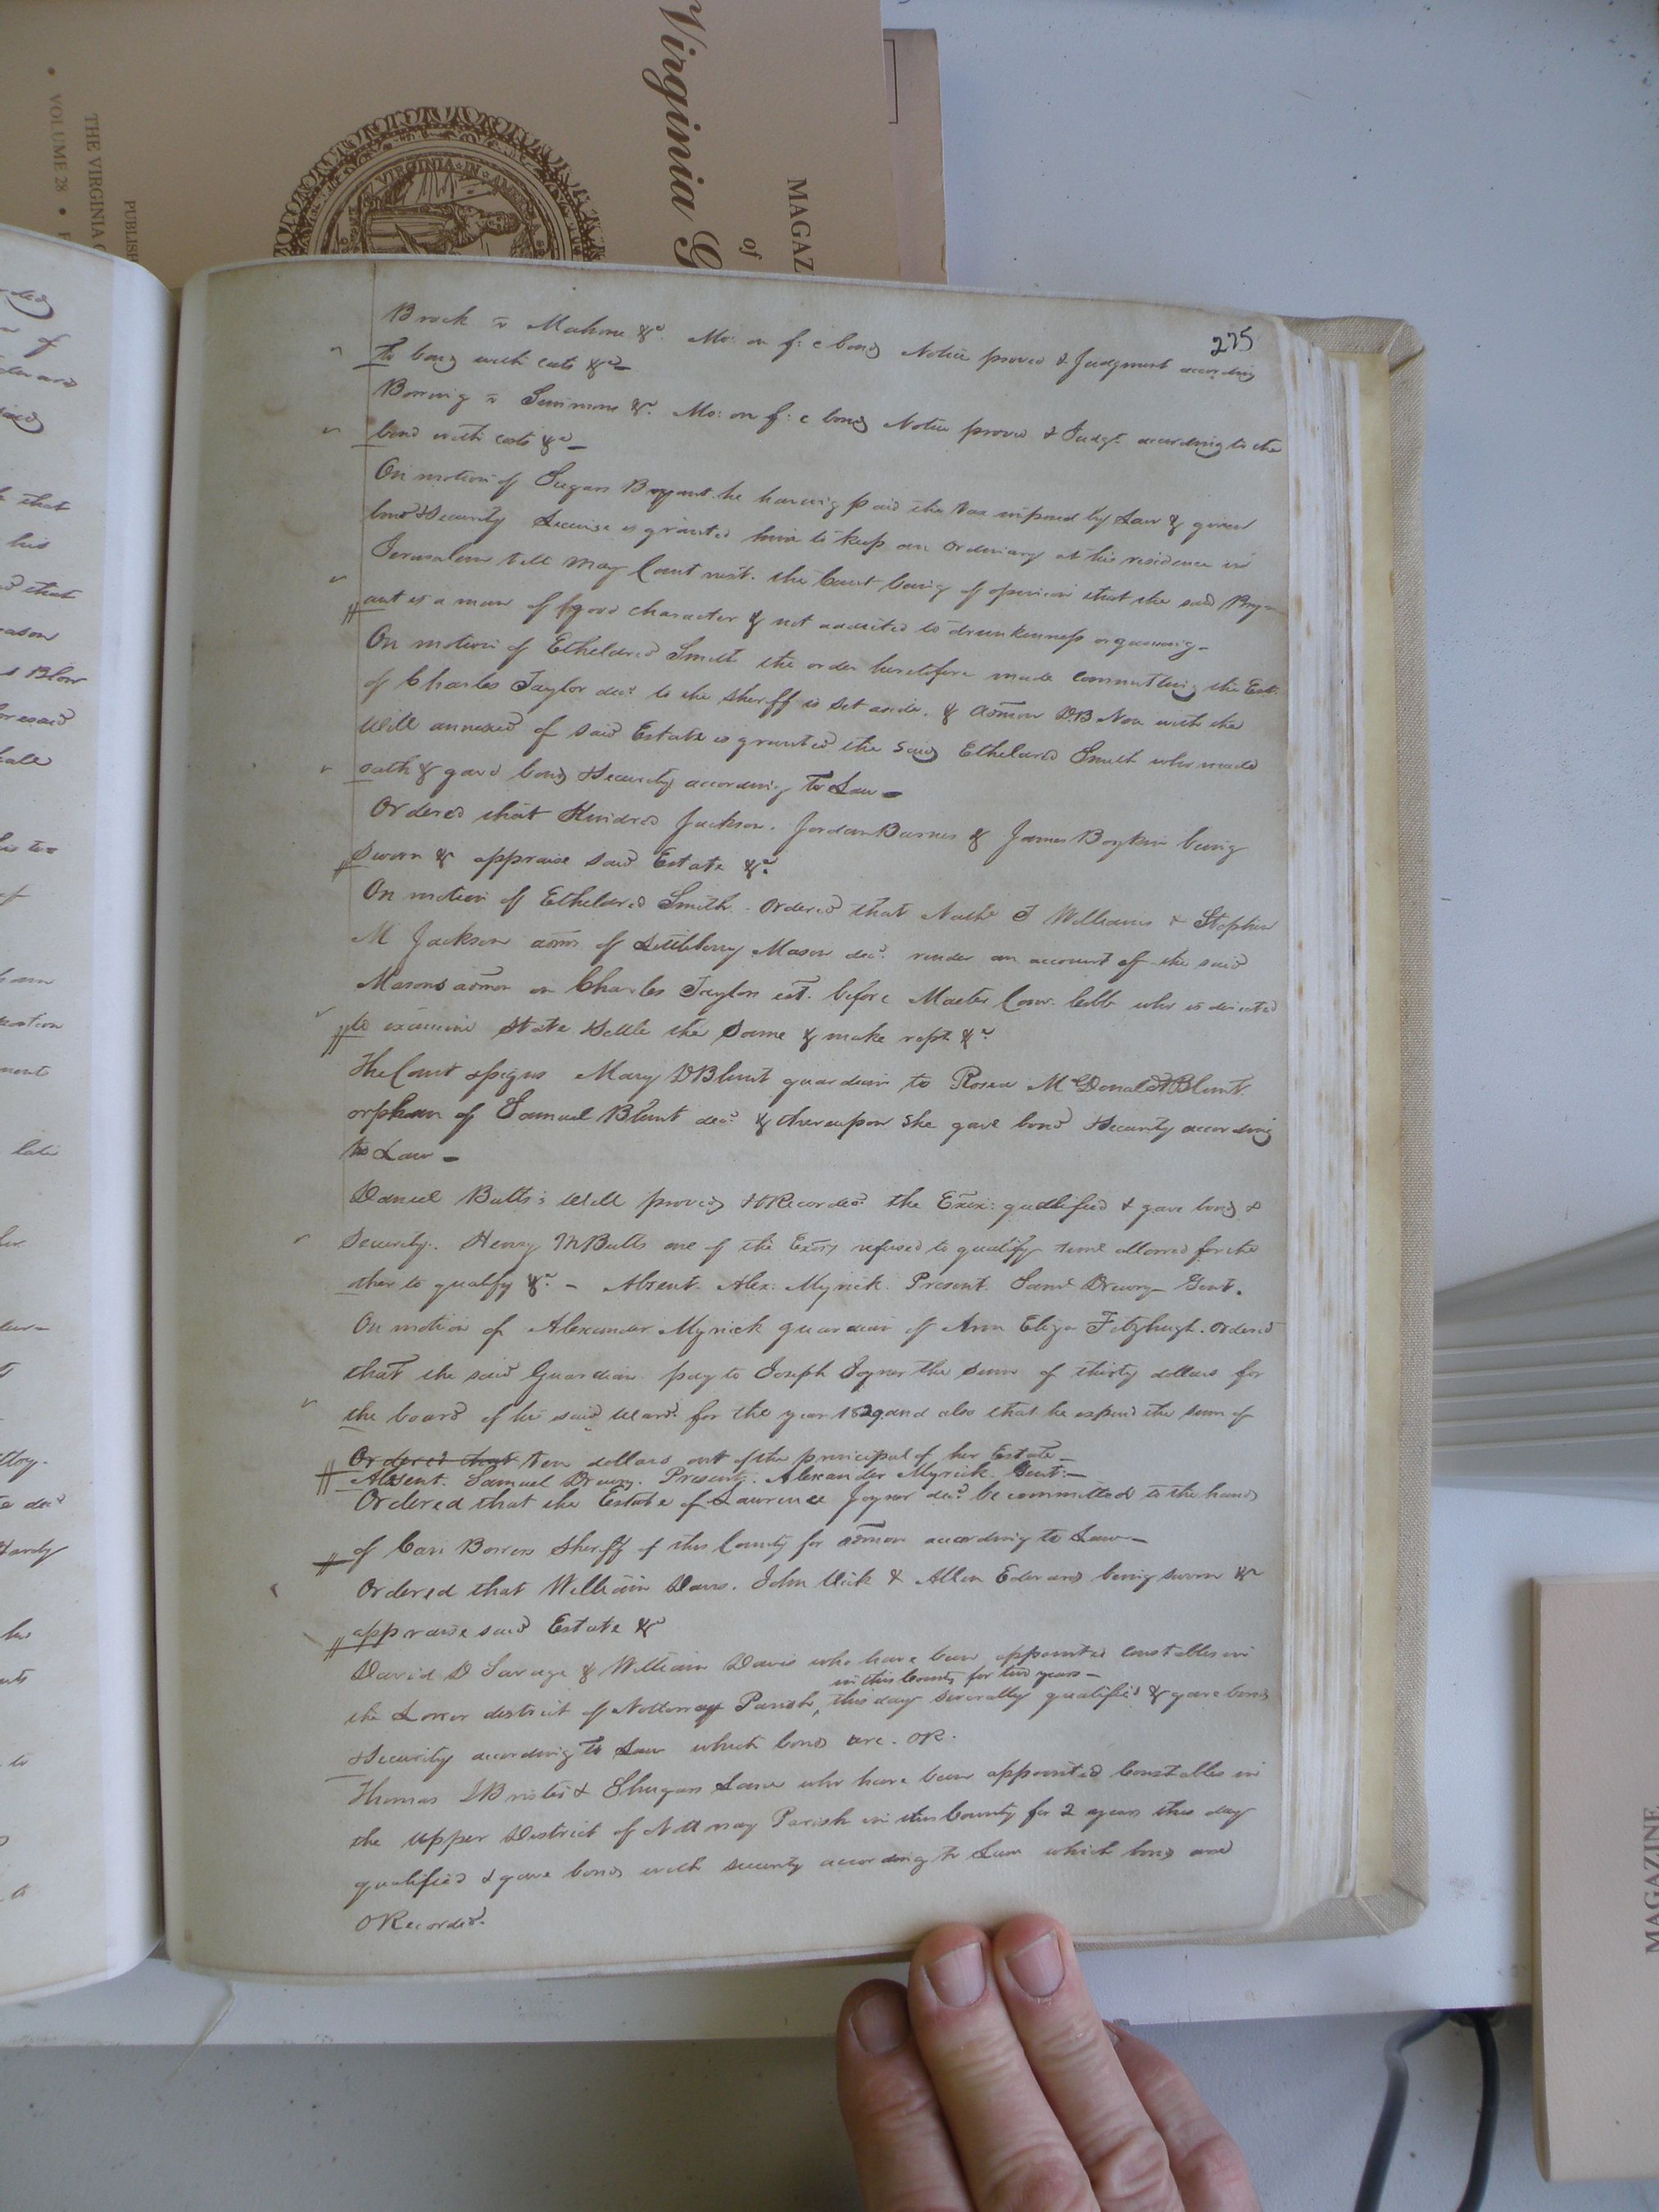 Virginia
MAGAZ
of
PUBLISH
THE VIRGINIA
• VOLUME 28 •
VIRGINIA IN
MAGAZINE
225
Brock vs Mahone &c. Mo: on f: c bond Notice proved & Judgment according
to bond with costs &c
vs Simmons &c. Mo: on f: c bond Notice proved & Judgt. according to the
bond with costs &c
On motion of Sugars Bryant he having paid the tax imposed by Law & given
bond & Security License is granted him to keep an ordinary at his residence in
Jerusalem till May Court next. the Court being of opinion that the said Bry
ant is a man of good character & not addicted to drunkenness or gaming
On motion of Etheldred Smith the order heretofore made committing the Est.
of Charles Taylor decd. to the Sheriff is set aside. & admon DB Non with the
Will annexed of said Estate is granted the said Etheldred Smith who made
oath & gave bond & Security according to Law
Ordered that Kindred Jackson. Jordan Barnes & James Boykin being
Sworn & appraise said Estate &c.
On motion of Etheldred Smith. Ordered that Nathl J Williams & Stephen
M Jackson adms. of Littleberry Mason decd. render an account of the said
Masons admon on Charles Taylors est. before Master Comr. Cobb who is directed
to examine State & Settle the Same & make rept &c.
The Court assigns Mary D Blunt guardian to Rosea McDonald Blunt.
orphan of Samuel Blunt decd. & thereupon She gave bond & Security according
to Law
Daniel Butts's Will proved & ORecorded. the Exix: qualified & gave bond &
Security. Henry M Butts one of the Exors refused to qualify time allowed for the
other to qualify &c. - Absent. Alex: Myrick. Present. Saml Drewry Gent.
On motion of Alexander Myrick guardian of Ann Eliza Fitzhugh. Ordered
that the said Guardian pay to Joseph Joyner the sum of thirty dollars for
the board of his said Ward. for the year 1829 and also that he expend the sum of
Ordered that ten dollars out of the principal of her Estate
Absent. Samuel Drewry. Present. Alexander Myrick Gent:
Ordered that the Estate of Lawrence Joyner decd. be committed to the hands
of Carr Bowers Sheriff of this County for admon according to Law
Ordered that William Davis. John Vick & Allen Edwards being sworn &c
appraise said Estate &c
David D Savage & William Davis who have been appointed Constables in
in this County for two years
the Lower district of Nottoway Parish, this day severally qualified & gave bond
& Security according to Law which bonds are. OR.
Thomas & Shugars Lane who have been appointed Constables in
the Upper District of Nottoway Parish in this County for 2 years this day
qualified & gave bonds with security according to Law which bonds are
ORecorded.